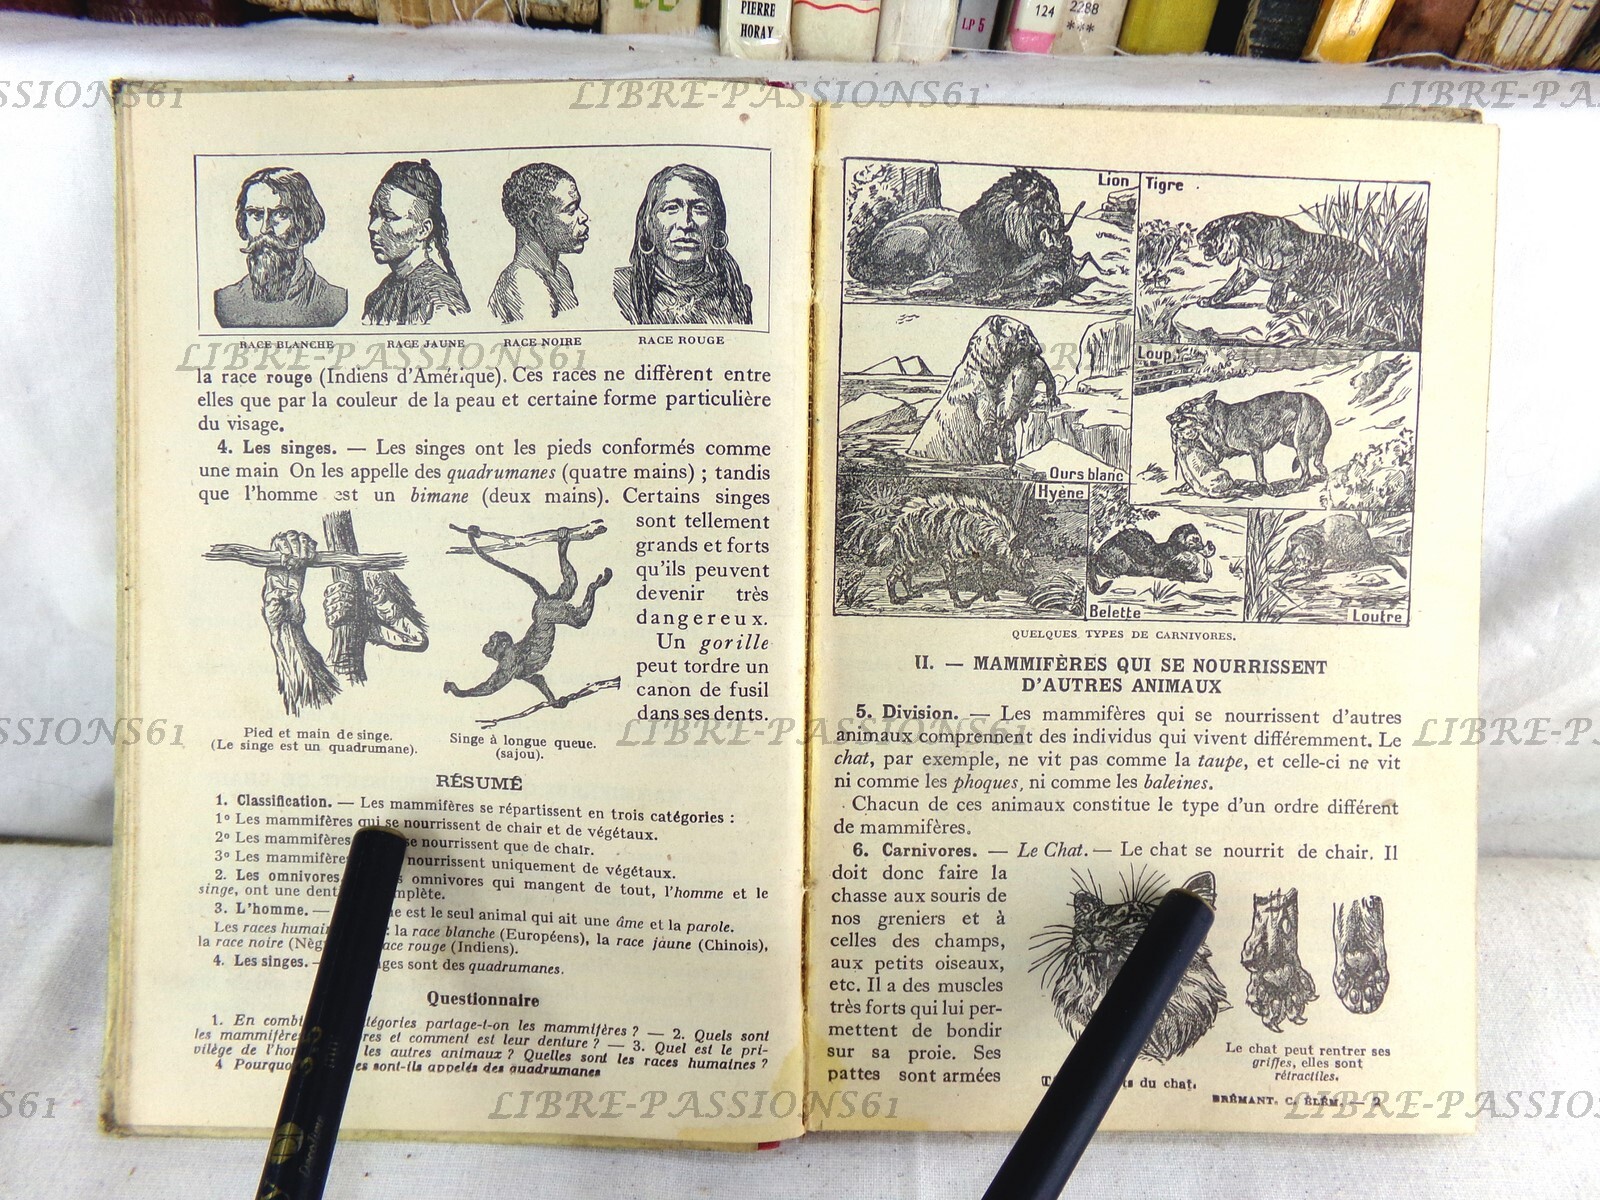 PIERRE
HORAY
I.P 5
124
2288
***
LIBRE-PASSIONS61
RACE BLANCHE
RACE JAUNE
RACE NOIRE
RACE ROUGE
la race rouge (Indiens d'Amérique). Ces races ne diffèrent entre
elles que par la couleur de la peau et certaine forme particulière
du visage.
4. Les singes. — Les singes ont les pieds conformés comme
une main On les appelle des quadrumanes (quatre mains) ; tandis
que l'homme est un bimane (deux mains). Certains singes
sont tellement
grands et forts
qu'ils peuvent
devenir très
dangereux.
Un gorille
peut tordre un
canon de fusil
dans ses dents.
Pied et main de singe.
(Le singe est un quadrumane).
Singe à longue queue.
(sajou).
RÉSUMÉ
1. Classification. — Les mammifères se répartissent en trois catégories :
1º Les mammifères qui se nourrissent de chair et de végétaux.
2º Les mammifères se nourrissent que de chair.
3º Les mammifères nourrissent uniquement de végétaux.
2. Les omnivores. omnivores qui mangent de tout, l'homme et le
singe, ont une denti mplète.
3. L'homme. — est le seul animal qui ait une âme et la parole.
Les races humai : la race blanche (Européens), la race jaune (Chinois),
la race noire (Nèg ace rouge (Indiens).
4. Les singes. — ges sont des quadrumanes.
Questionnaire
1. En combi tégories partage-t-on les mammifères ? — 2. Quels sont
les mammifère res et comment est leur denture ? — 3. Quel est le pri-
vilège de l'hom les autres animaux ? Quelles sont les races humaines ?
4 Pourquo es sont-ils appelés des quadrumanes
Lion
Tigre
Loup
Ours blanc
Hyène
Belette
Loutre
QUELQUES TYPES DE CARNIVORES.
II. — MAMMIFÈRES QUI SE NOURRISSENT
D'AUTRES ANIMAUX
5. Division. — Les mammifères qui se nourrissent d'autres
animaux comprennent des individus qui vivent différemment. Le
chat, par exemple, ne vit pas comme la taupe, et celle-ci ne vit
ni comme les phoques, ni comme les baleines.
Chacun de ces animaux constitue le type d'un ordre différent
de mammifères.
6. Carnivores. — Le Chat. — Le chat se nourrit de chair. Il
doit donc faire la
chasse aux souris de
nos greniers et à
celles des champs,
aux petits oiseaux,
etc. Il a des muscles
très forts qui lui per-
mettent de bondir
sur sa proie. Ses
pattes sont armées
du chat.
Le chat peut rentrer ses
griffes, elles sont
rétractiles.
BRÉMANT. C. ÉLÉM. — 2